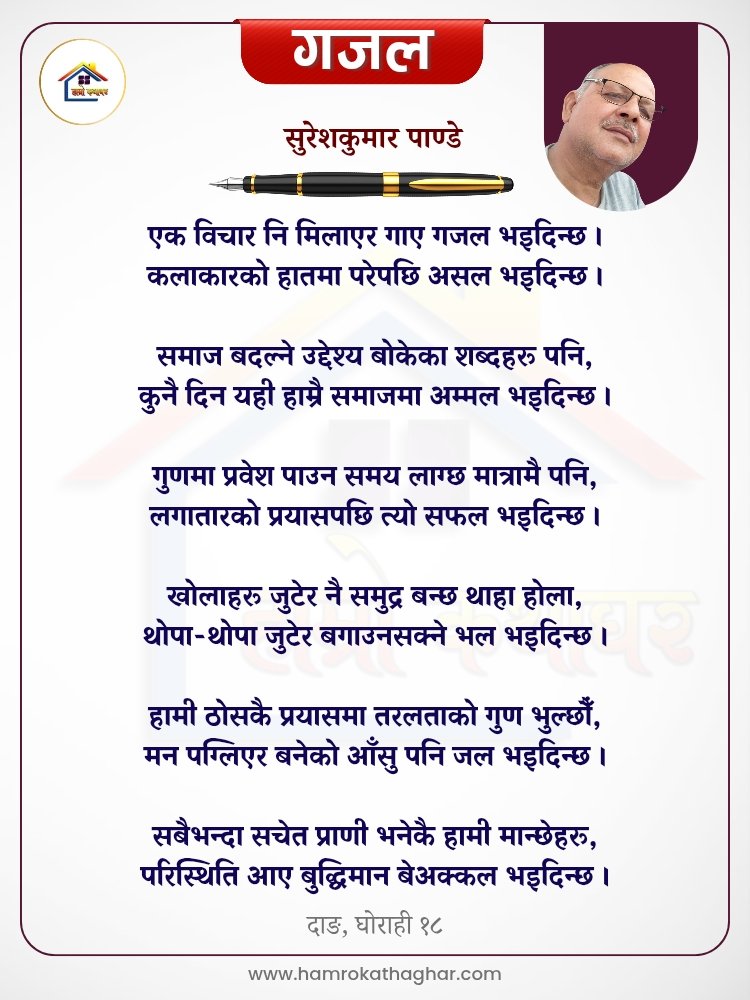 गजल
हाम्रो कथाघर
सुरेशकुमार पाण्डे
एक विचार नि मिलाएर गाए गजल भइदिन्छ।
कलाकारको हातमा परेपछि असल भइदिन्छ।
समाज बदल्ने उद्देश्य बोकेका शब्दहरू पनि,
कुनै दिन यही हाम्रै समाजमा अम्मल भइदिन्छ।
गुणमा प्रवेश पाउन समय लाग्छ मात्रामै पनि,
लगातारको प्रयासपछि त्यो सफल भइदिन्छ।
खोलाहरू जुटेर नै समुद्र बन्छ थाहा होला,
थोपा-थोपा जुटेर बगाउनसक्ने भल भइदिन्छ।
हामी ठोसकै प्रयासमा तरलताको गुण भुल्छौँ,
मन पग्लिएर बनेको आँसु पनि जल भइदिन्छ।
सबैभन्दा सचेत प्राणी भनेकै हामी मान्छेहरू,
परिस्थिति आए बुद्धिमान बेअक्कल भइदिन्छ।
दाङ, घोराही १८
www.hamrokathaghar.com